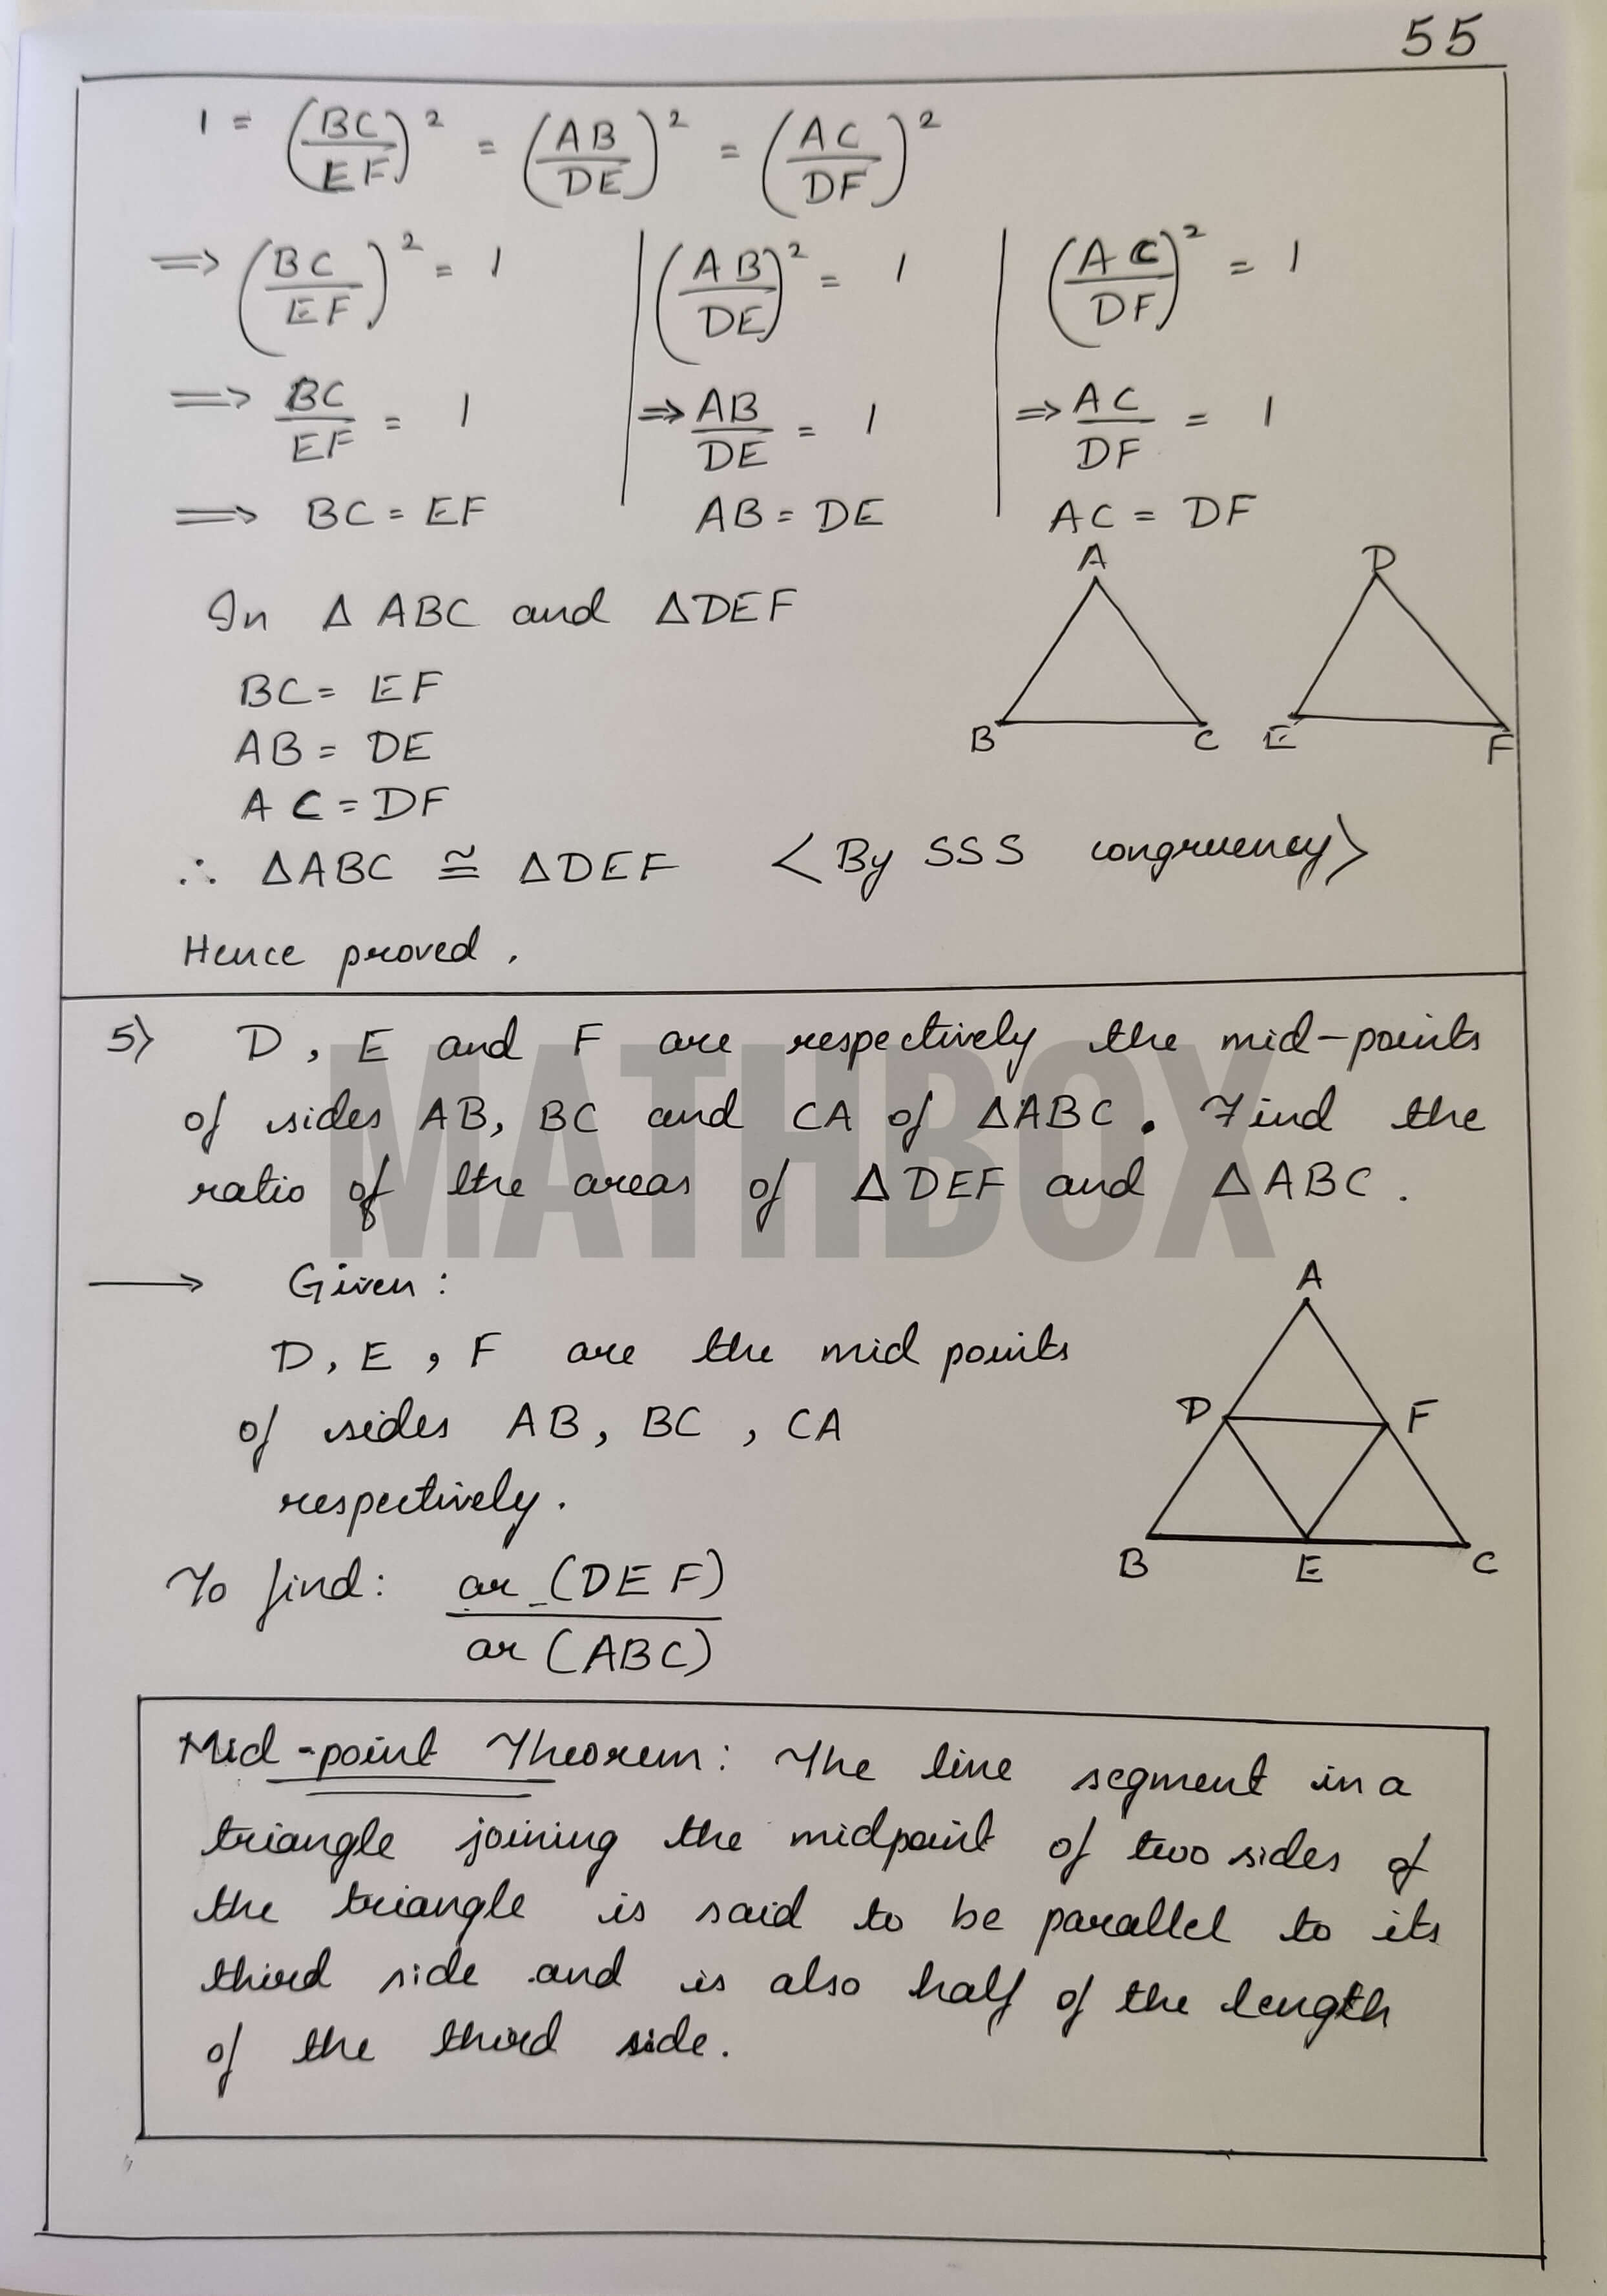 55
1 = (BC/EF)² = (AB/DE)² = (AC/DF)²
⇒ (BC/EF)² = 1 | (AB/DE)² = 1 | (AC/DF)² = 1
⇒ BC/EF = 1 | ⇒ AB/DE = 1 | ⇒ AC/DF = 1
⇒ BC = EF AB = DE AC = DF
In Δ ABC and ΔDEF
BC = EF
AB = DE
AC = DF
∴ ΔABC ≅ ΔDEF <By SSS congruency>
Hence proved.
A
B C
D
E F
5) D, E and F are respectively the mid-points
of sides AB, BC and CA of ΔABC. Find the
ratio of the areas of ΔDEF and ΔABC.
MATHBOX
→ Given:
D, E, F are the mid points
of sides AB, BC, CA
respectively.
A
D F
B E C
To find: ar (DEF)
ar (ABC)
Mid-point Theorem: The line segment in a
triangle joining the midpoint of two sides of
the triangle is said to be parallel to its
third side and is also half of the length
of the third side.